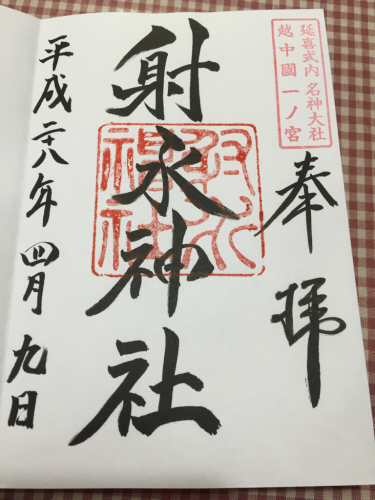 延喜式内 名神大社
越中國一ノ宮
奉拝
射水神社
射水神社
平成二十八年四月九日